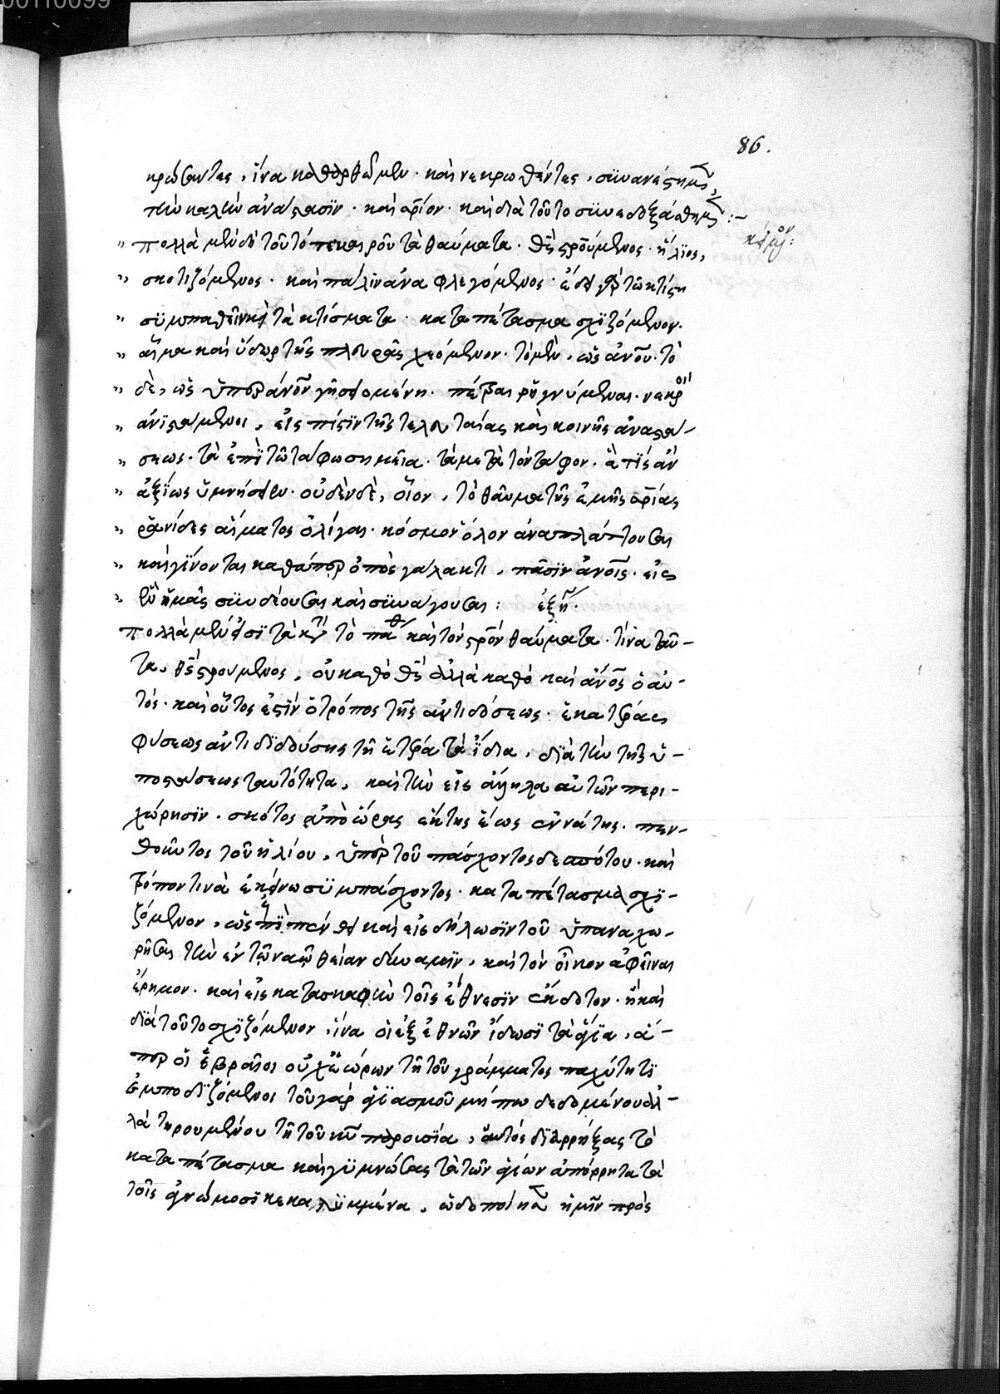 00110099
86.
κρώσαντες, ἵνα καθαρθῶμεν· καὶ νεκρωθέντες, συνανέστημεν
τὴν καλὴν ἀνάστασιν· καὶ διὰ τοῦτο συνεδοξάσθημεν :~
κείμενον:
" πολλὰ μὲν δὴ τοῦ τότε καιροῦ τὰ θαύματα· θς σταυρούμενος· ἥλιος,
" σκοτιζόμενος· καὶ πάλιν ἀναφλεγόμενος· ἔδει γὰρ τῷ κτίστῃ
" συμπαθεῖν καὶ τὰ κτίσματα· καταπέτασμα σχιζόμενον·
" αἷμα καὶ ὕδωρ τῆς πλευρᾶς χεόμενον· τὸ μὲν, ὡς ἀνου· τὸ
" δὲ, ὡς ὑπὲρ ἄνον γῆ σειομένη· πέτραι ῥηγνύμεναι· νεκροὶ
" ἀνιστάμενοι, εἰς πίστιν τῆς τελευταίας καὶ κοινῆς ἀναστά-
" σεως· τὰ ἐπὶ τῷ τάφῳ σημεῖα· τὰ μετὰ τὸν τάφον· ἃ τίς ἂν
" ἀξίως ὑμνήσειεν· οὐδὲν δὲ, οἷον, τὸ θαῦμα τῆς ἐμῆς σρίας
" ῥανίδες αἵματος ὀλίγαι· κόσμον ὅλον ἀναπλάττουσαι
" καὶ γίνονται καθάπερ ὀπὸς γάλακτι, πᾶσιν ἀνοις· εἰς
" ἓν ἡμᾶς συνδέουσαι καὶ συνάγουσαι: ἐξήγ.
πολλὰ μὲν φησὶ τὰ κατὰ τὸ πάθος καὶ τὸν στρον θαύματα· τίνα ταῦ-
τα, θς στρούμενος, οὐ καθὸ θς ἀλλὰ καθὸ καὶ ἄνος ὁ αὐ-
τός· καὶ οὗτος ἐστὶν ὁ τρόπος τῆς ἀντιδόσεως· ἑκατέρας
φύσεως ἀντιδιδούσης τῇ ἑτέρᾳ τὰ ἴδια, διὰ τὴν τῆς ὑ-
ποστάσεως ταυτότητα, καὶ τὴν εἰς ἄλληλα αὐτῶν περι-
χώρησιν· σκότος ἀπὸ ὥρας ἕκτης ἕως ἐννάτης· πεν-
θοῦντος τοῦ ἡλίου, ὑπὲρ τοῦ πάσχοντος δεσπότου· καὶ
τρόπον τινὰ ἐκείνῳ συμπάσχοντος· καταπέτασμα σχι-
ζόμενον, ὡς ἐπὶ πένθει καὶ εἰς δήλωσιν τοῦ ὑπαναχω-
ρῆσαι τὴν ἐν τῷ ναῷ θείαν δύναμιν, καὶ τὸν οἶκον ἀφεῖναι
ἔρημον· καὶ εἰς κατασκαφὴν τοῖς ἔθνεσιν ἔκδοτον· ἢ καὶ
διὰ τοῦτο σχιζόμενον, ἵνα οἱ ἐξ ἐθνῶν ἴδωσι τὰ ἅγια, ἅ-
περ οἱ ἑβραῖοι οὐχ ἑώρων τῇ τοῦ γράμματος παχύτητι
ἐμποδιζόμενοι τοῦ γὰρ ἁγιασμοῦ μήπω δεδομένου ἀλ-
λὰ τηρουμένου τῇ τοῦ κυ παρουσίᾳ, αὐτὸς διαρρήξας τὸ
καταπέτασμα καὶ γυμνώσας τὰ τῶν ἁγίων ἀπόρρητα τὰ
τοῖς ἀγνώμοσι κεκαλυμμένα, ὡδοποίησεν ἡμῖν πρὸς